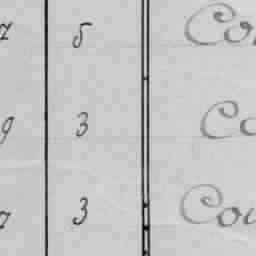 7 5 Co
9 3 Co
7 3 Cou